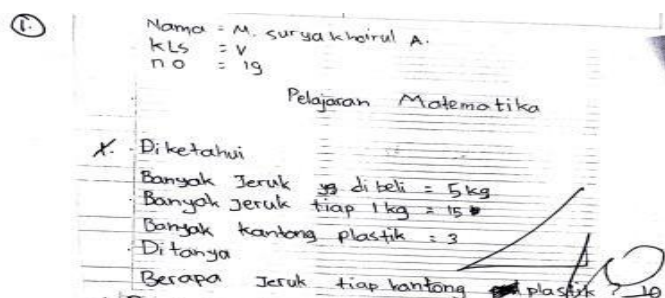 1.
Nama = M. Surya khoirul A.
kLs = V
no = 19
Pelajaran Matematika
Diketahui
Banyak Jeruk yg di beli = 5 kg
Banyak Jeruk tiap 1 kg = 15
Banyak kantong plastik = 3
Ditanya
Berapa Jeruk tiap kantong plastik ? 10